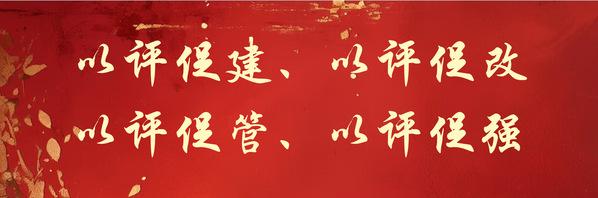 以评促建、以评促改
以评促管、以评促强